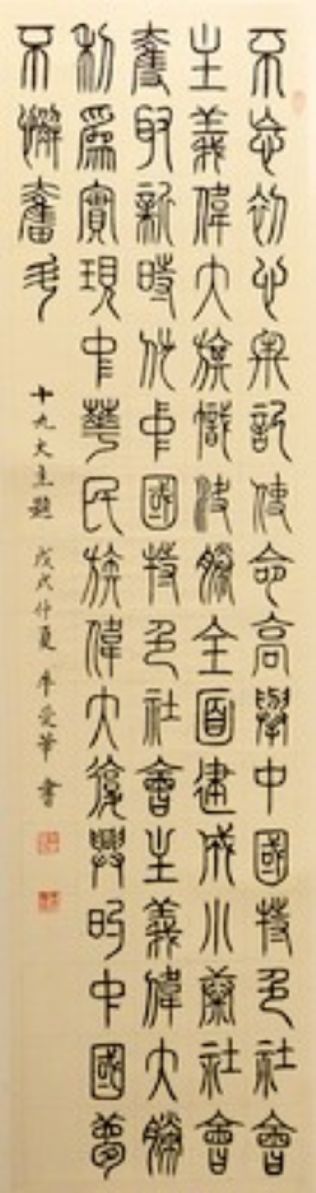 不忘初心牢記使命高舉中國特色社會
主義偉大旗幟決勝全面建成小康社會
奪取新時代中國特色社會主義偉大勝
利為實現中華民族偉大復興的中國夢
不懈奮斗
十九大主題 戊戌仲夏 書